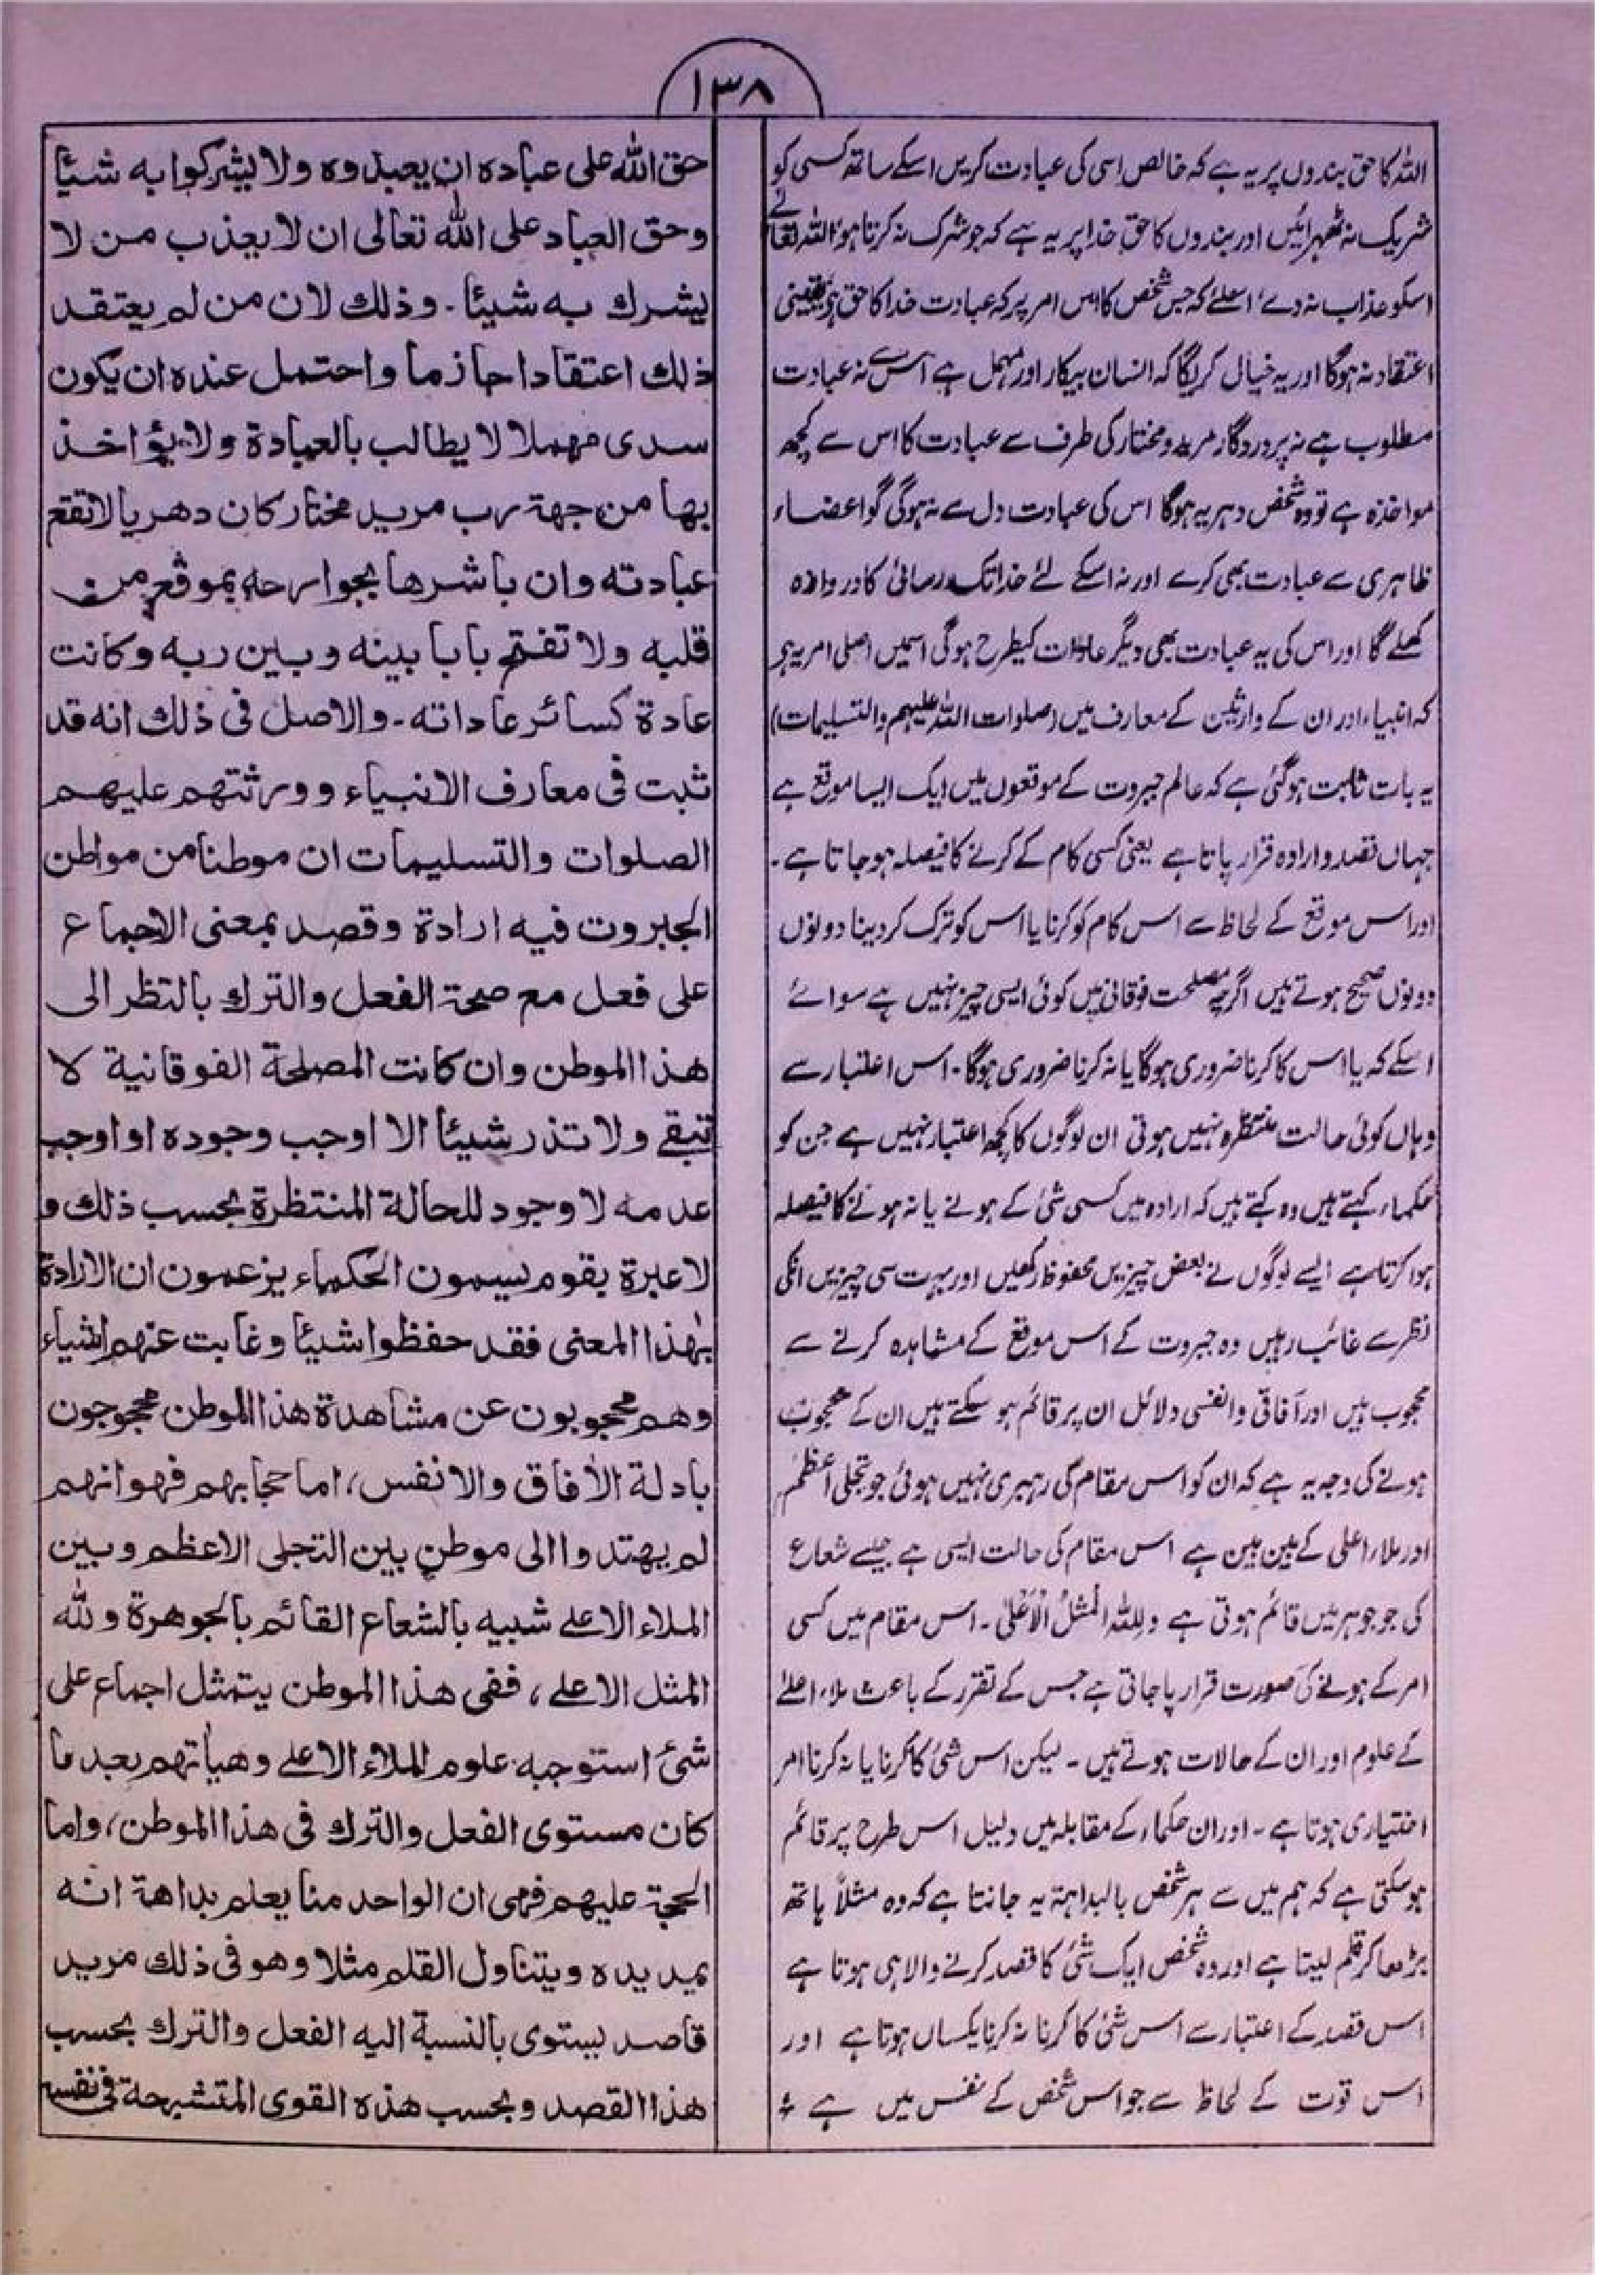 ۱۳۸
اللہ کا حق بندوں پر یہ ہے کہ خالص اسی کی عبادت کریں اسکے ساتھ کسی کو
شریک نہ ٹھہرائیں اور بندوں کا حق خدا پر یہ ہے کہ جو شرک نہ کرتا ہو اللہ تعالےٰ
اسکو عذاب نہ دے، اسلئے کہ جس شخص کا اس امر پر کہ عبادت خدا کا حق ہے یقینی
اعتقاد نہ ہوگا اور یہ خیال کریگا کہ انسان بیکار اور مہمل ہے اس سے نہ عبادت
مطلوب ہے نہ پروردگار مرید و مختار کی طرف سے عبادت کا اس سے کچھ
مواخذہ ہے تو وہ شخص دہریہ ہوگا اس کی عبادت دل سے نہ ہوگی گو اعضاء
ظاہری سے عبادت بھی کرے اور نہ اسکے لئے خدا تک رسائی کا دروازہ
کھلے گا اور اس کی یہ عبادت بھی دیگر عادات کیطرح ہوگی اسمیں اصلی امر یہ ہی
کہ انبیاء اور ان کے وارثین کے معارف میں (صلوات اللہ علیہم والتسلیمات)
یہ بات ثابت ہوگئی ہے کہ عالم جبروت کے موقعوں میں ایک ایسا موقع ہے
جہاں قصد و ارادہ قرار پاتا ہے یعنی کسی کام کے کرنے کا فیصلہ ہو جاتا ہے۔
اور اس موقع کے لحاظ سے اس کام کو کرنا یا اس کو ترک کر دینا دونوں
دونوں صحیح ہوتے ہیں اگرچہ مصلحت فوقانی میں کوئی ایسی چیز نہیں ہے سوائے
اسکے کہ یا اس کا کرنا ضروری ہوگا یا نہ کرنا ضروری ہوگا۔ اس اعتبار سے
وہاں کوئی حالت منتظرہ نہیں ہوتی ان لوگوں کا کچھ اعتبار نہیں ہے جن کو
حکماء کہتے ہیں وہ کہتے ہیں کہ ارادہ میں کسی شئ کے ہونے یا نہ ہونے کا فیصلہ
ہوا کرتا ہے ایسے لوگوں نے بعض چیزیں محفوظ رکھیں اور بہت سی چیزیں انکی
نظر سے غائب رہیں وہ جبروت کے اس موقع کے مشاہدہ کرنے سے
محجوب ہیں اور آفاقی و انفسی دلائل ان پر قائم ہو سکتے ہیں ان کے محجوب
ہونے کی وجہ یہ ہے کہ ان کو اس مقام کی رہبری نہیں ہوئی جو تجلی اعظم
اور ملاء اعلی کے بین بین ہے اس مقام کی حالت ایسی ہے جیسے شعاع
کی جو جوہر میں قائم ہوتی ہے وللہ المثل الاعلیٰ۔ اس مقام میں کسی
امر کے ہونے کی صورت قرار پا جاتی ہے جس کے تقرر کے باعث ملاء اعلےٰ
کے علوم اور ان کے حالات ہوتے ہیں۔ لیکن اس شئ کا کرنا یا نہ کرنا امر
اختیاری ہوتا ہے۔ اور ان حکماء کے مقابلہ میں دلیل اس طرح پر قائم
ہو سکتی ہے کہ ہم میں سے ہر شخص بالبداہۃ یہ جانتا ہے کہ وہ مثلاً ہاتھ
بڑھا کر قلم لیتا ہے اور وہ شخص ایک شئ کا قصد کرنے والا ہی ہوتا ہے
اس قصد کے اعتبار سے اس شئ کا کرنا نہ کرنا یکساں ہوتا ہے اور
اس قوت کے لحاظ سے جو اس شخص کے نفس میں ہے
حق الله على عباده ان يعبدوه ولا يشركوا به شيئا
وحق العباد على الله تعالى ان لا يعذب من لا
يشرك به شيئا۔ وذلك لان من لم يعتقد
ذلك اعتقادا جازما واحتمل عنده ان يكون
سدى مهملا لا يطالب بالعبادة ولا يؤاخذ
بها من جهة رب مريد مختار كان دهريا لا تقع
عبادته وان باشرها بجوارحه بموقع من
قلبه ولا تفتح بابا بينه وبين ربه وكانت
عادة كسائر عاداته۔ والاصل فى ذلك انه قد
ثبت فى معارف الانبياء وورثتهم عليهم
الصلوات والتسليمات ان موطنا من مواطن
الجبروت فيه ارادة وقصد بمعنى الاجماع
على فعل مع صحة الفعل والترك بالنظر الى
هذا الموطن وان كانت المصلحة الفوقانية لا
تبقى ولا تذر شيئا الا اوجب وجوده او اوجب
عدمه لا وجود للحالة المنتظرة بحسب ذلك و
لا عبرة بقوم يسمون الحكماء يزعمون ان الارادة
بهذا المعنى فقد حفظوا شيئا وغابت عنهم اشياء
وهم محجوبون عن مشاهدة هذا الموطن محجوجون
بادلة الآفاق والانفس، اما حجابهم فهو انهم
لم يهتدوا الى موطن بين التجلى الاعظم وبين
الملاء الاعلے شبيه بالشعاع القائم بالجوهرة ولله
المثل الاعلے، ففى هذا الموطن يتمثل اجماع على
شئ استوجبه علوم الملاء الاعلے وهيأتهم بعد ما
كان مستوى الفعل والترك فى هذا الموطن، واما
الحجة عليهم فهى ان الواحد منا يعلم بداهة انه
يمد يده ويتناول القلم مثلا وهو فى ذلك مريد
قاصد يستوى بالنسبة اليه الفعل والترك بحسب
هذا القصد وبحسب هذه القوى المتشبحة فى نفسه